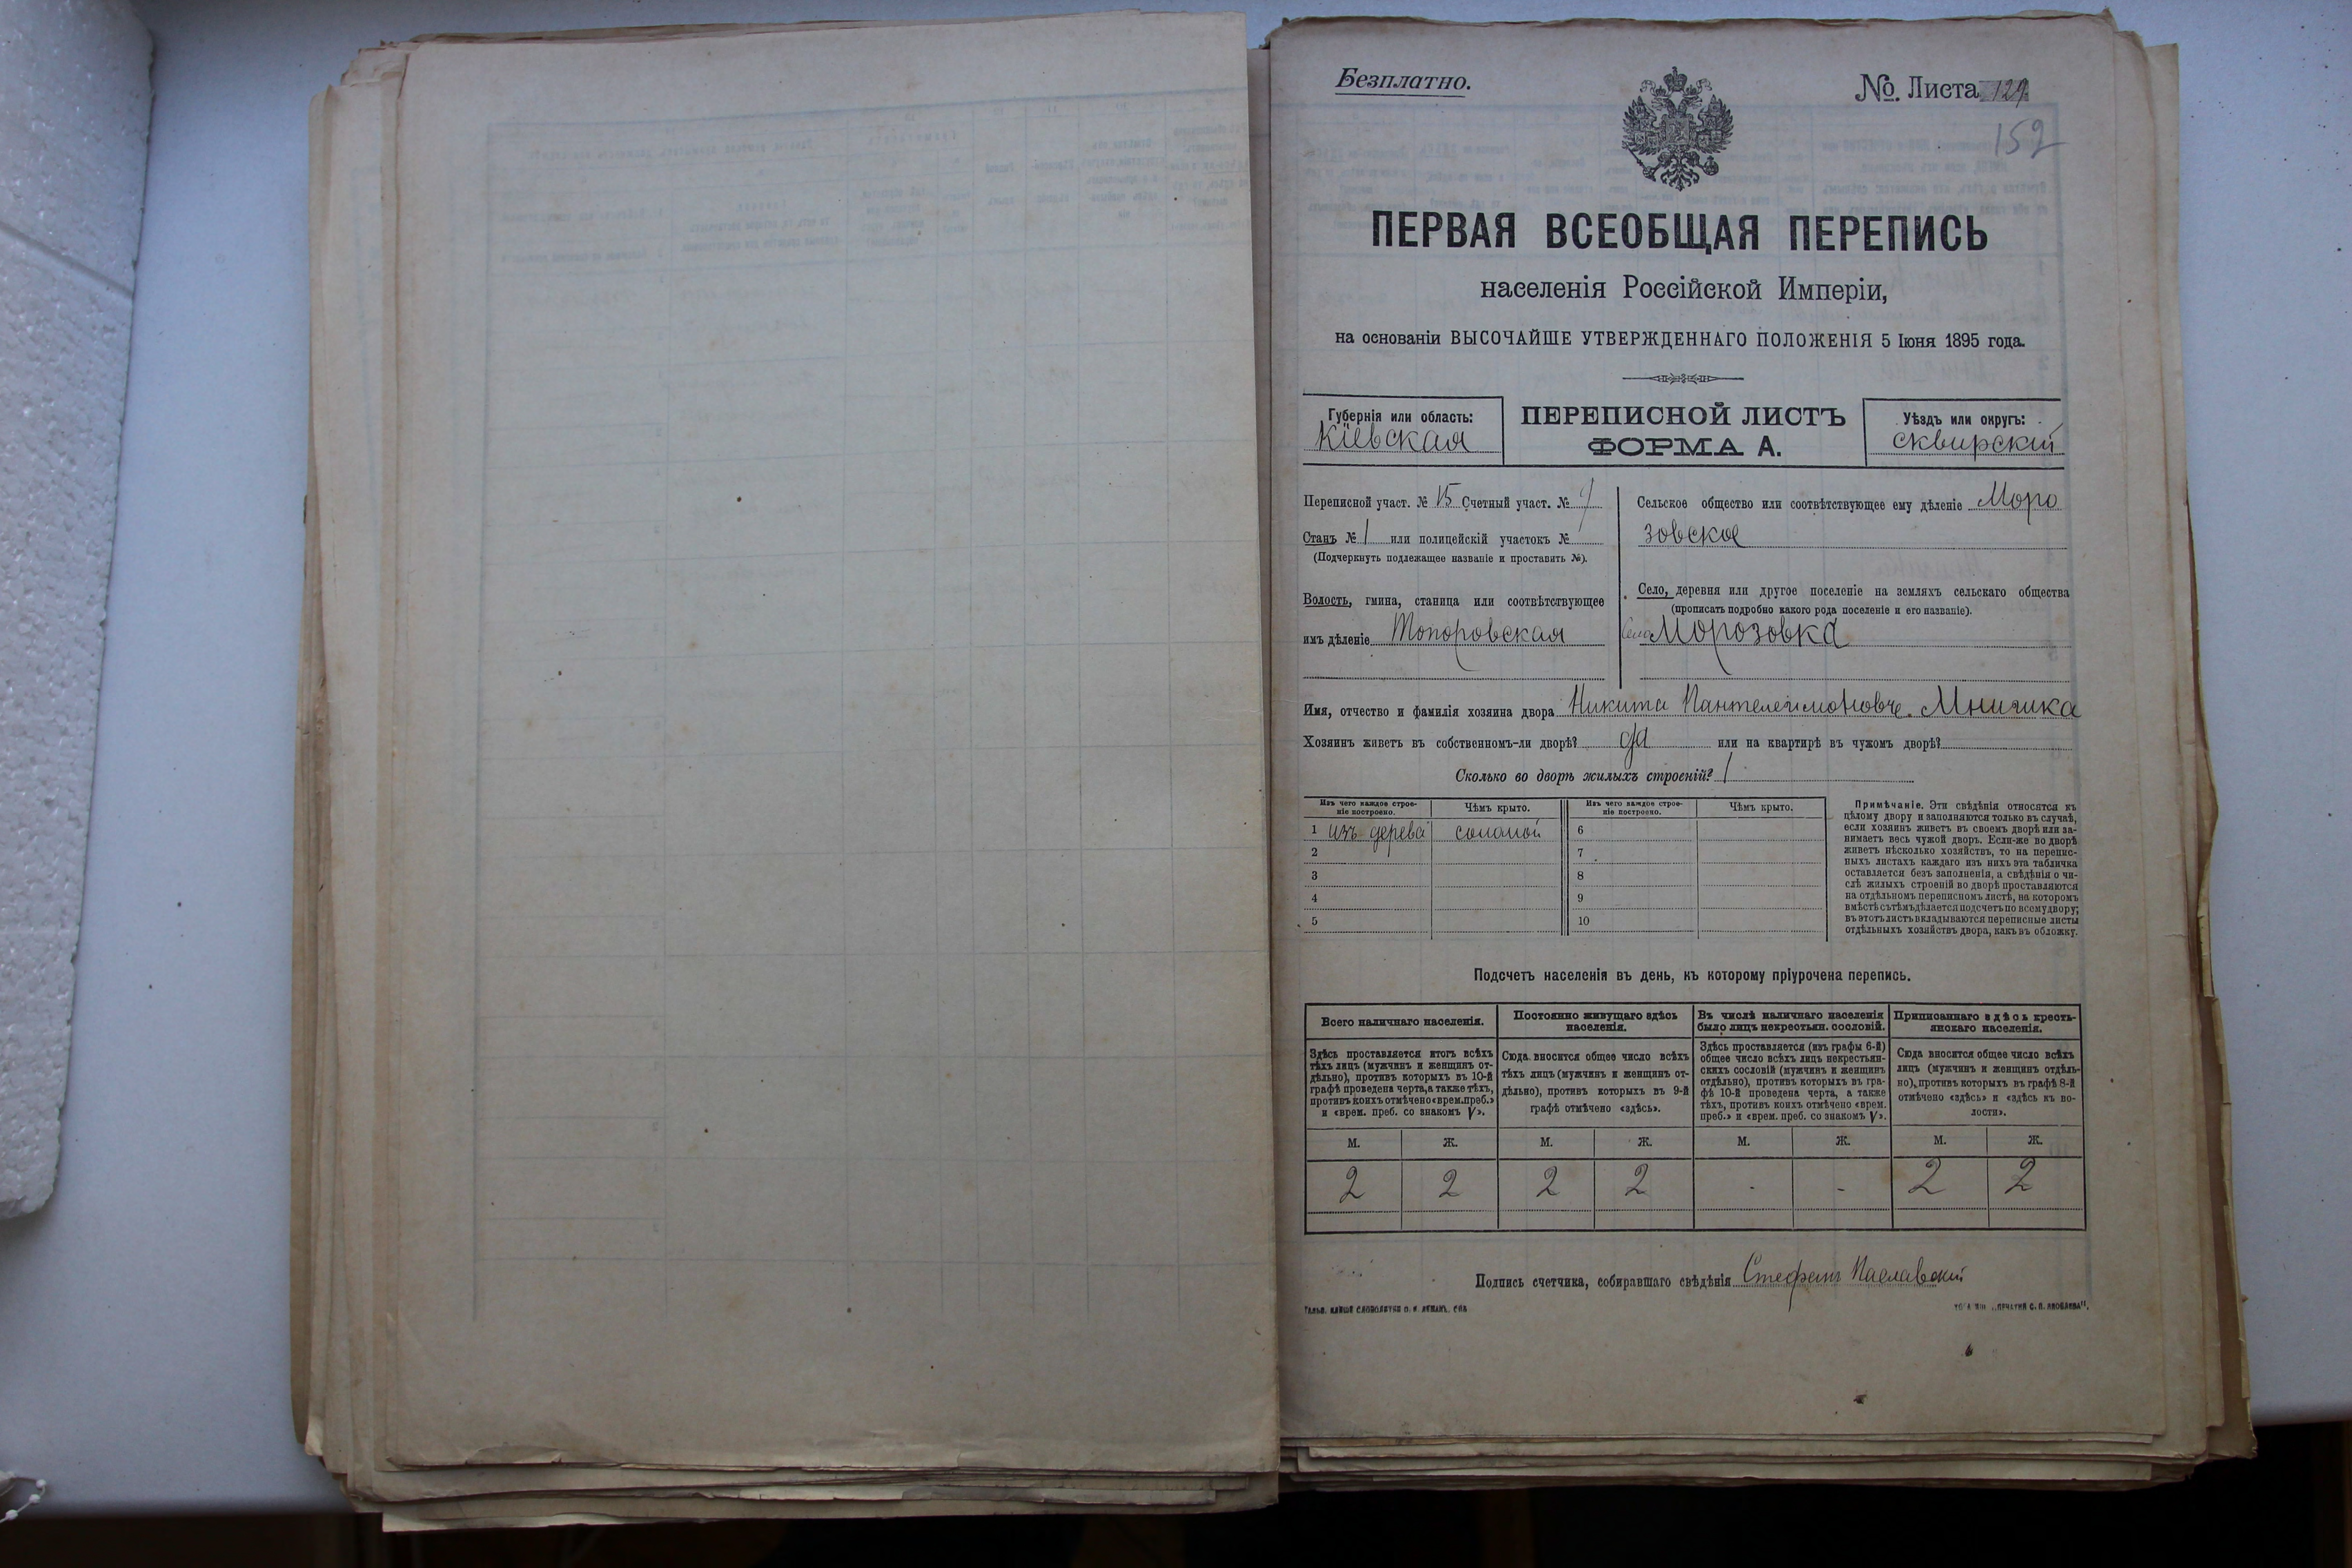 Безплатно.
№ Листа 129
152
ПЕРВАЯ ВСЕОБЩАЯ ПЕРЕПИСЬ
населенія Россійской Имперіи,
на основаніи ВЫСОЧАЙШЕ УТВЕРЖДЕННАГО ПОЛОЖЕНІЯ 5 Іюня 1895 года.
Губернія или область:
Кіевская
ПЕРЕПИСНОЙ ЛИСТЪ
ФОРМА А.
Уѣздъ или округъ:
Сквирскій
Переписной участ. № 15 Счетный участ. №
Станъ № 1 или полицейскій участокъ №
(Подчеркнуть подлежащее названіе и проставить №).
Волость, гмина, станица или соотвѣтствующее
имъ дѣленіе Топоровская
Сельское общество или соотвѣтствующее ему дѣленіе Моро
зовское
Село, деревня или другое поселеніе на земляхъ сельскаго общества
(прописать подробно какого рода поселеніе и его названіе).
Село Морозовка
Имя, отчество и фамилія хозяина двора Никита Пантелеимоновъ
Хозяинъ живетъ въ собственномъ-ли дворѣ? да или на квартирѣ въ чужомъ дворѣ?
Сколько во дворѣ жилыхъ строеній? 1
Изъ чего каждое строе-
ніе построено.
Чѣмъ крыто.
Изъ чего каждое строе-
ніе построено.
Чѣмъ крыто.
1 изъ дерева соломой 6
2 7
3 8
4 9
5 10
Примѣчаніе. Эти свѣдѣнія относятся къ
цѣлому двору и заполняются только въ случаѣ,
если хозяинъ живетъ въ своемъ дворѣ или за-
нимаетъ весь чужой дворъ. Если-же во дворѣ
живетъ нѣсколько хозяйствъ, то на перепис-
ныхъ листахъ каждаго изъ нихъ эта табличка
оставляется безъ заполненія, а свѣдѣнія о чи-
слѣ жилыхъ строеній во дворѣ проставляются
на отдѣльномъ переписномъ листѣ, на которомъ
вмѣстѣ съ тѣмъ дѣлается подсчетъ по всему двору;
въ этотъ листъ вкладываются переписные листы
отдѣльныхъ хозяйствъ двора, какъ въ обложку.
Подсчетъ населенія въ день, къ которому пріурочена перепись.
Всего наличнаго населенія.
Здѣсь проставляется итогъ всѣхъ
тѣхъ лицъ (мужчинъ и женщинъ от-
дѣльно), противъ которыхъ въ 10-й
графѣ проведена черта, а также тѣхъ,
противъ коихъ отмѣчено «врем. преб.»
и «врем. преб. со знакомъ V».
Постоянно живущаго здѣсь
населенія.
Сюда вносится общее число всѣхъ
тѣхъ лицъ (мужчинъ и женщинъ от-
дѣльно), противъ которыхъ въ 9-й
графѣ отмѣчено «здѣсь».
Въ числѣ наличнаго населенія
было лицъ некрестьян. сословій.
Здѣсь проставляется (изъ графы 6-й)
общее число всѣхъ лицъ некрестьян-
скихъ сословій (мужчинъ и женщинъ
отдѣльно), противъ которыхъ въ гра-
фѣ 10-й проведена черта, а также
тѣхъ, противъ коихъ отмѣчено «врем.
преб.» и «врем. преб. со знакомъ V».
Приписаннаго здѣсь кресть-
янскаго населенія.
Сюда вносится общее число всѣхъ
лицъ (мужчинъ и женщинъ отдѣль-
но), противъ которыхъ въ графѣ 8-й
отмѣчено «здѣсь» и «здѣсь къ во-
лости».
М. Ж. М. Ж. М. Ж. М. Ж.
2 2 2 2 - - 2 2
Подпись счетчика, собиравшаго свѣдѣнія Стефанъ Паславскій